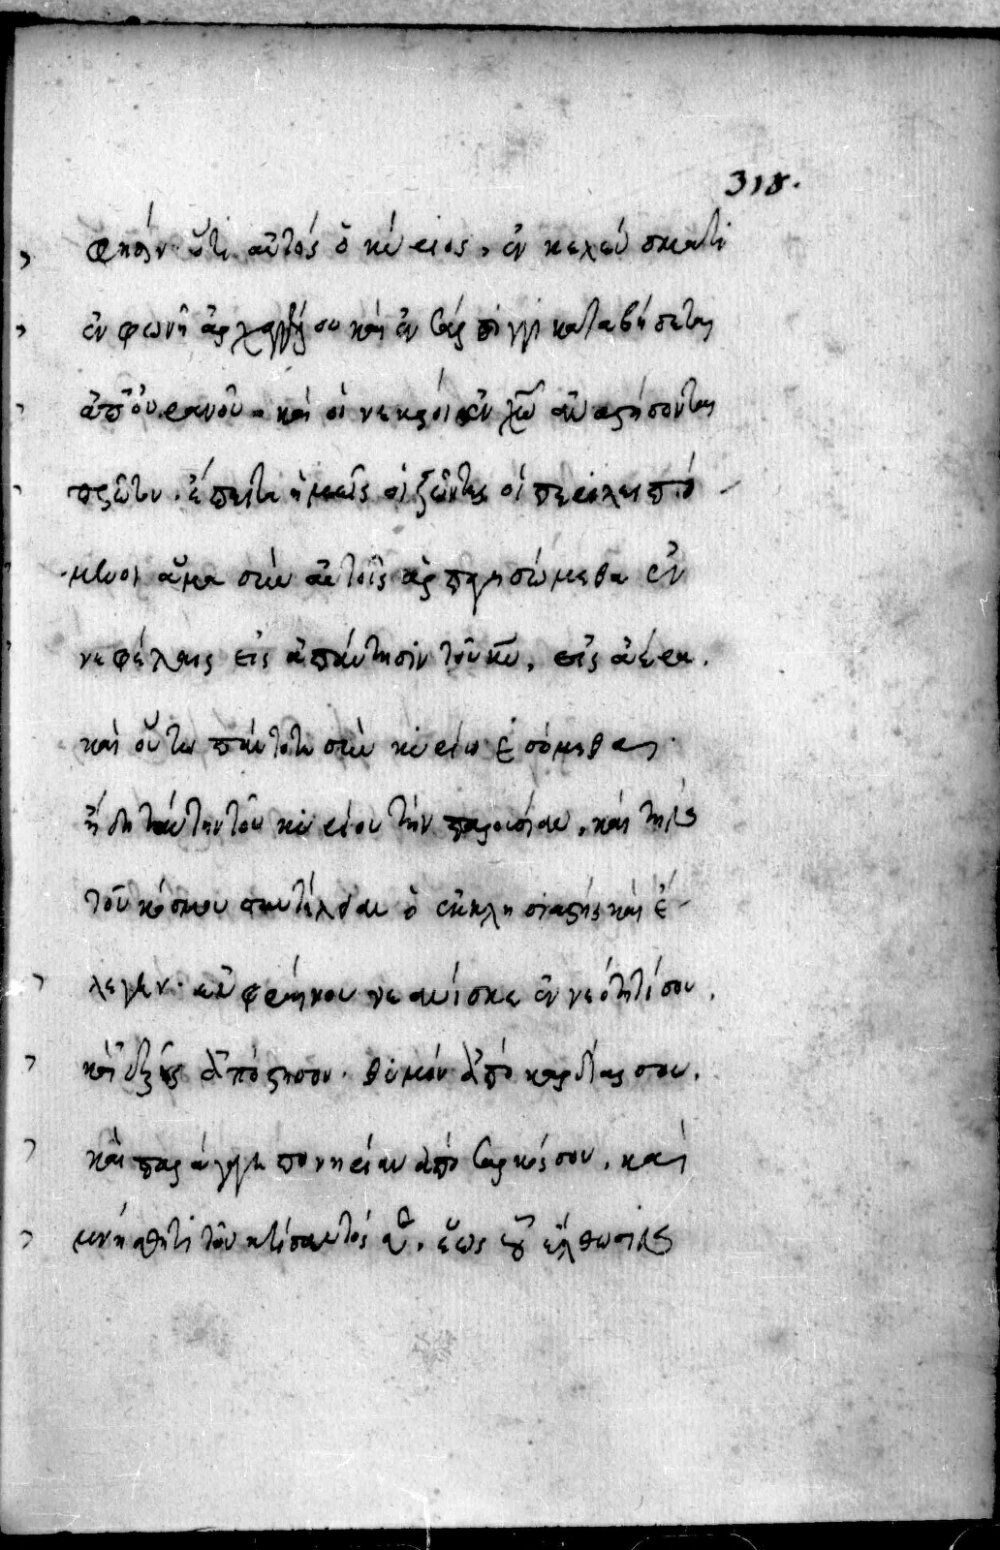 318.
φησίν· ὅτι αὐτός ὁ κύριος, ἐν κελεύσματι
ἐν φωνῇ ἀρχαγγέλου καὶ ἐν σάλπιγγι καταβήσεται
ἀπ' οὐρανοῦ· καὶ οἱ νεκροὶ ἐν χῶ ἀναστήσονται
πρῶτον. ἔπειτα ἡμεῖς οἱ ζῶντες οἱ περιλειπό
μενοι ἅμα σὺν αὐτοῖς ἁρπαγησώμεθα ἐν
νεφέλαις εἰς ἀπάντησιν τοῦ κυ, εἰς ἀέρα.
καὶ οὕτω πάντοτε σὺν κυρίω ἐσόμεθα
ἤδη ταύτην τοῦ κυρίου τὴν παρουσίαν, καὶ τὴν
τοῦ κόσμου συντέλειαν ὁ ἐκκλησιαστής καὶ ἔ
λεγεν· εὐφραίνου νεανίσκε ἐν νεότητί σου,
καὶ ἑξῆς ἀπόστησον θυμόν ἀπό καρδίας σου.
καὶ παράγαγε πονηρίαν ἀπό σαρκός σου, καὶ
μνήσθητι τοῦ κτίσαντός σε, ἕως οὗ ἔλθωσιν